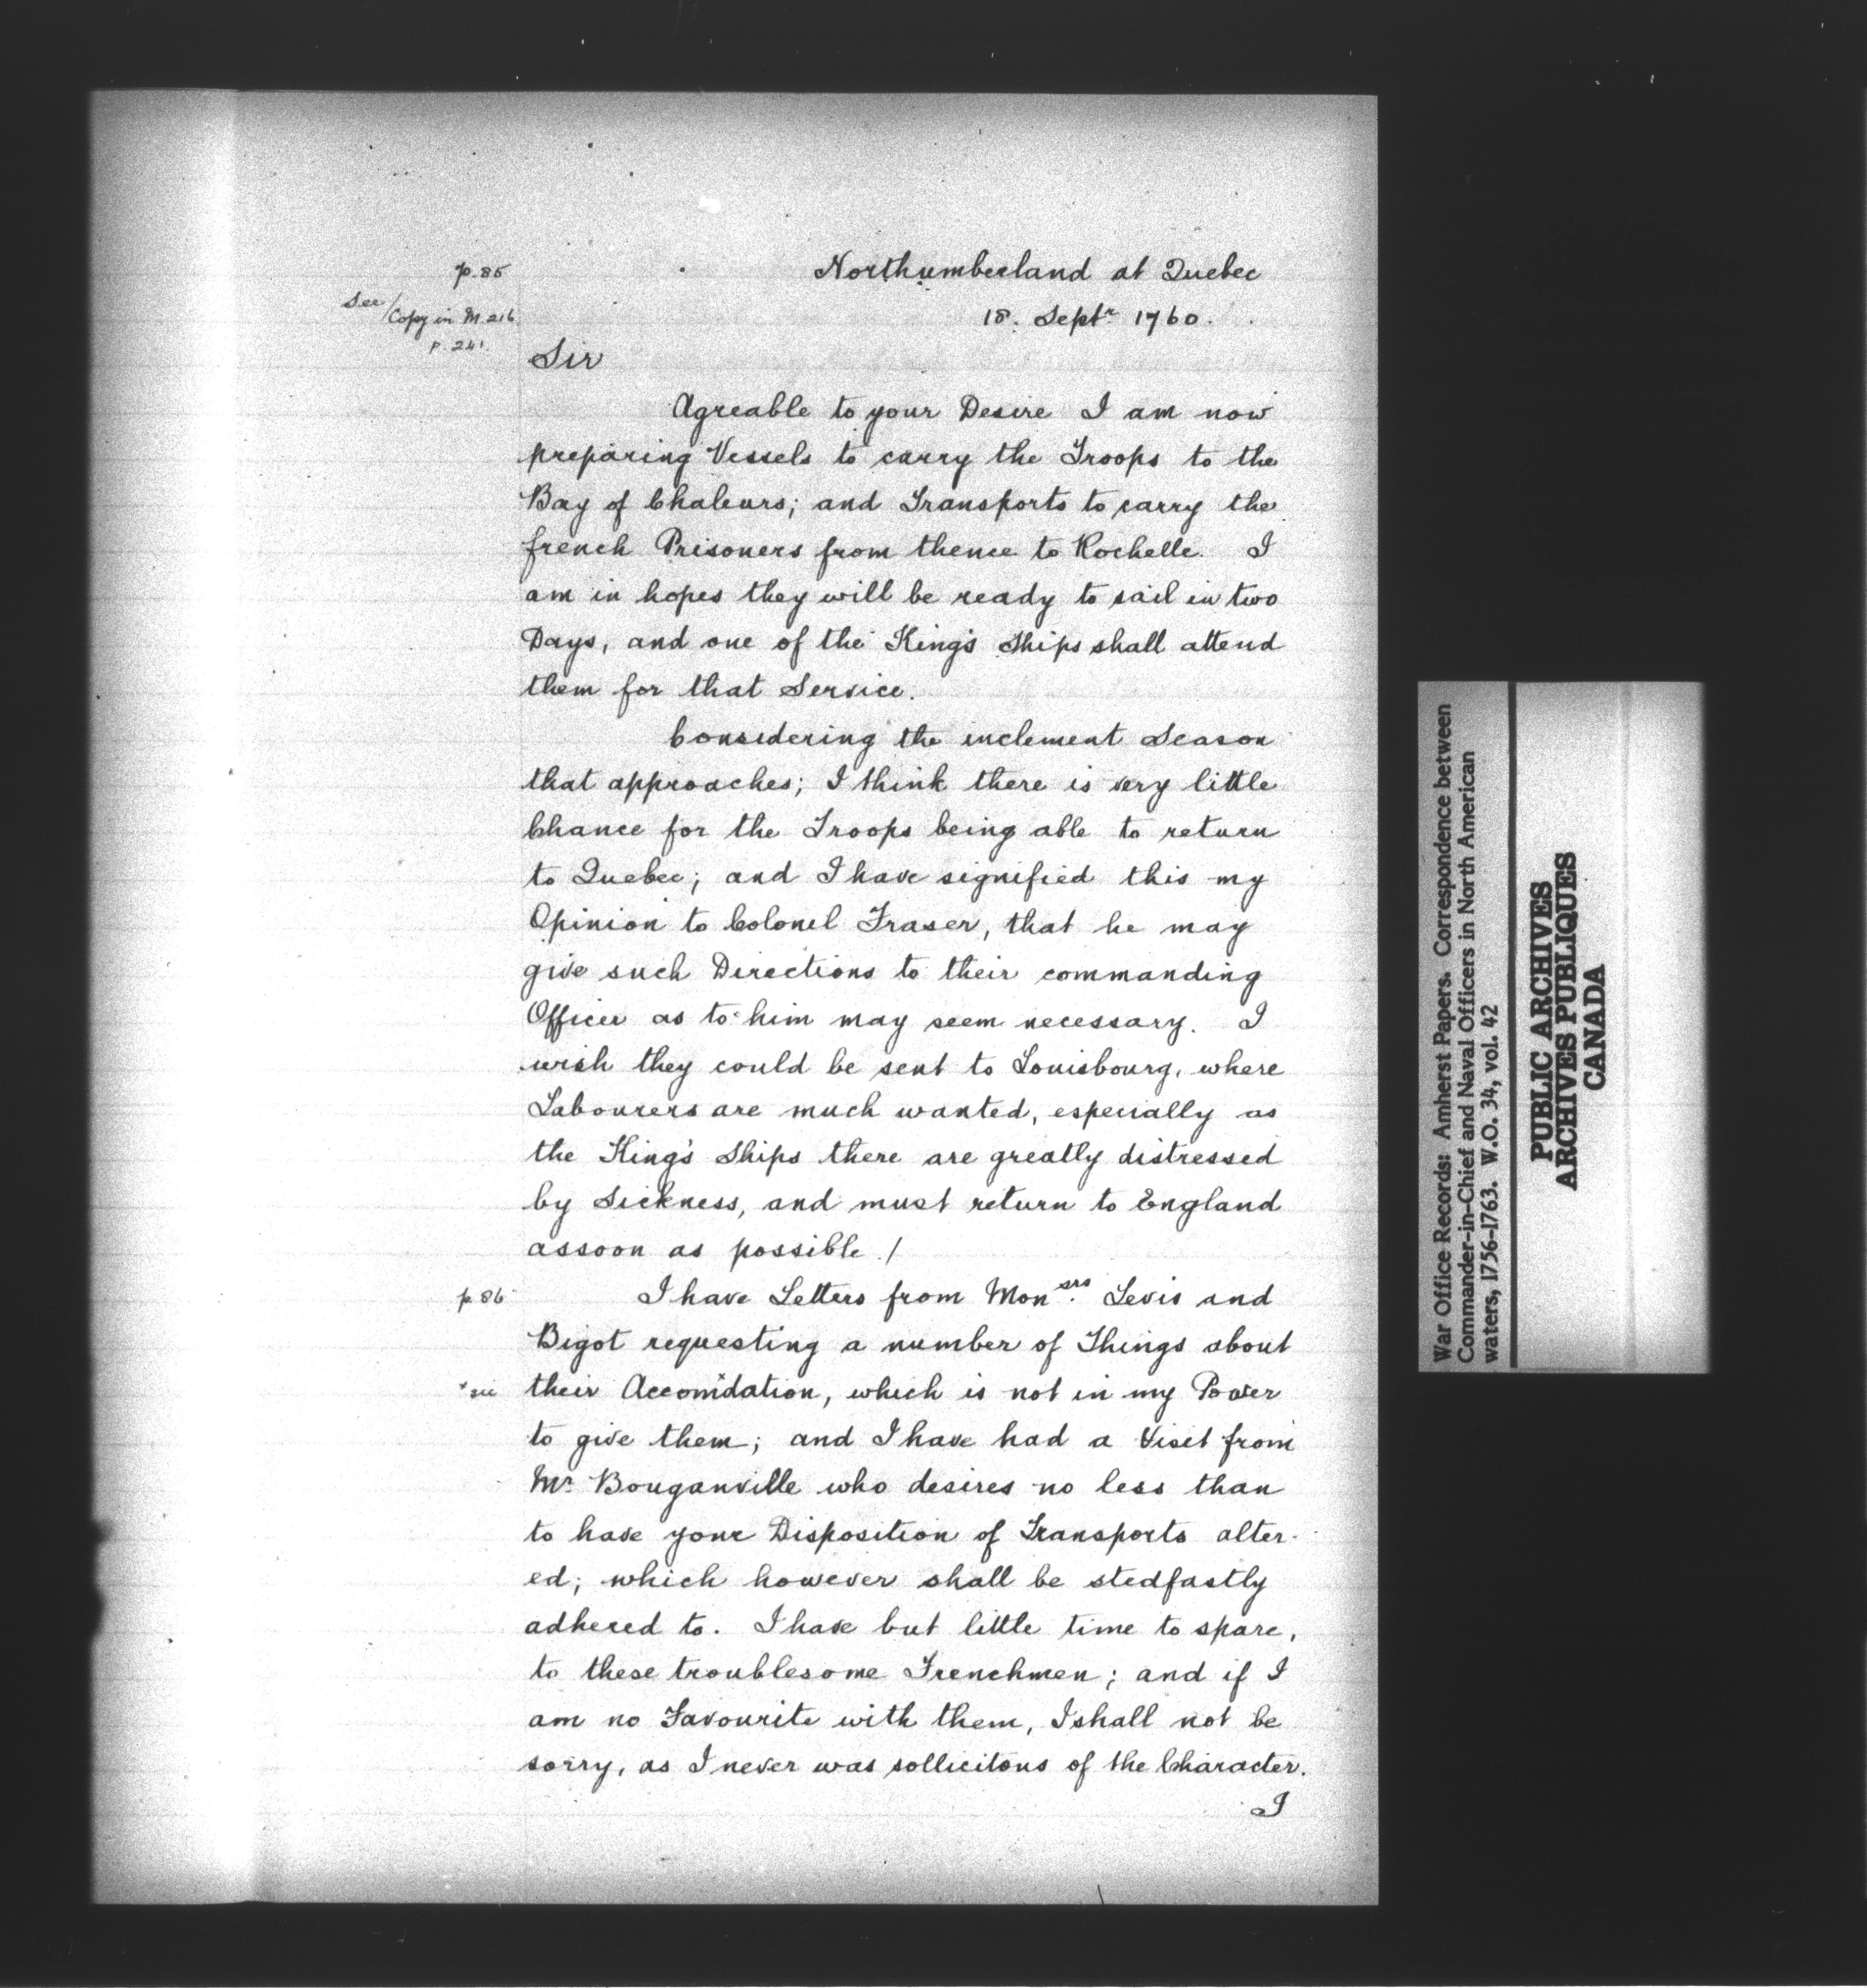 p. 85
See/
Copy in M. 216
p. 241.
Northumberland at Quebec
18. Septr. 1760.
Sir
Agreable to your Desire I am now
preparing Vessels to carry the Troops to the
Bay of Chaleurs; and Transports to carry the
french Prisoners from thence to Rochelle. I
am in hopes they will be ready to sail in two
Days, and one of the King's Ships shall attend
them for that Service.
Considering the inclement Season
that approaches; I think there is very little
Chance for the Troops being able to return
to Quebec; and I have signified this my
Opinion to Colonel Fraser, that he may
give such Directions to their commanding
Officer as to him may seem necessary. I
wish they could be sent to Louisbourg, where
Labourers are much wanted, especially as
the King's Ships there are greatly distressed
by Sickness, and must return to England
assoon as possible./
p. 86
I have Letters from Monsrs. Levis and
Bigot requesting a number of Things about
*sic
their Accomdation, which is not in my Power
to give them; and I have had a Visit from
Mr. Bouganville who desires no less than
to have your Disposition of Transports alter-
ed; which however shall be stedfastly
adhered to. I have but little time to spare,
to these troublesome Frenchmen; and if I
am no Favourite with them, I shall not be
sorry, as I never was sollicitous of the Character.
I
War Office Records: Amherst Papers. Correspondence between
Commander-in-Chief and Naval Officers in North American
waters, 1756-1763. W.O. 34, vol. 42
PUBLIC ARCHIVES
ARCHIVES PUBLIQUES
CANADA